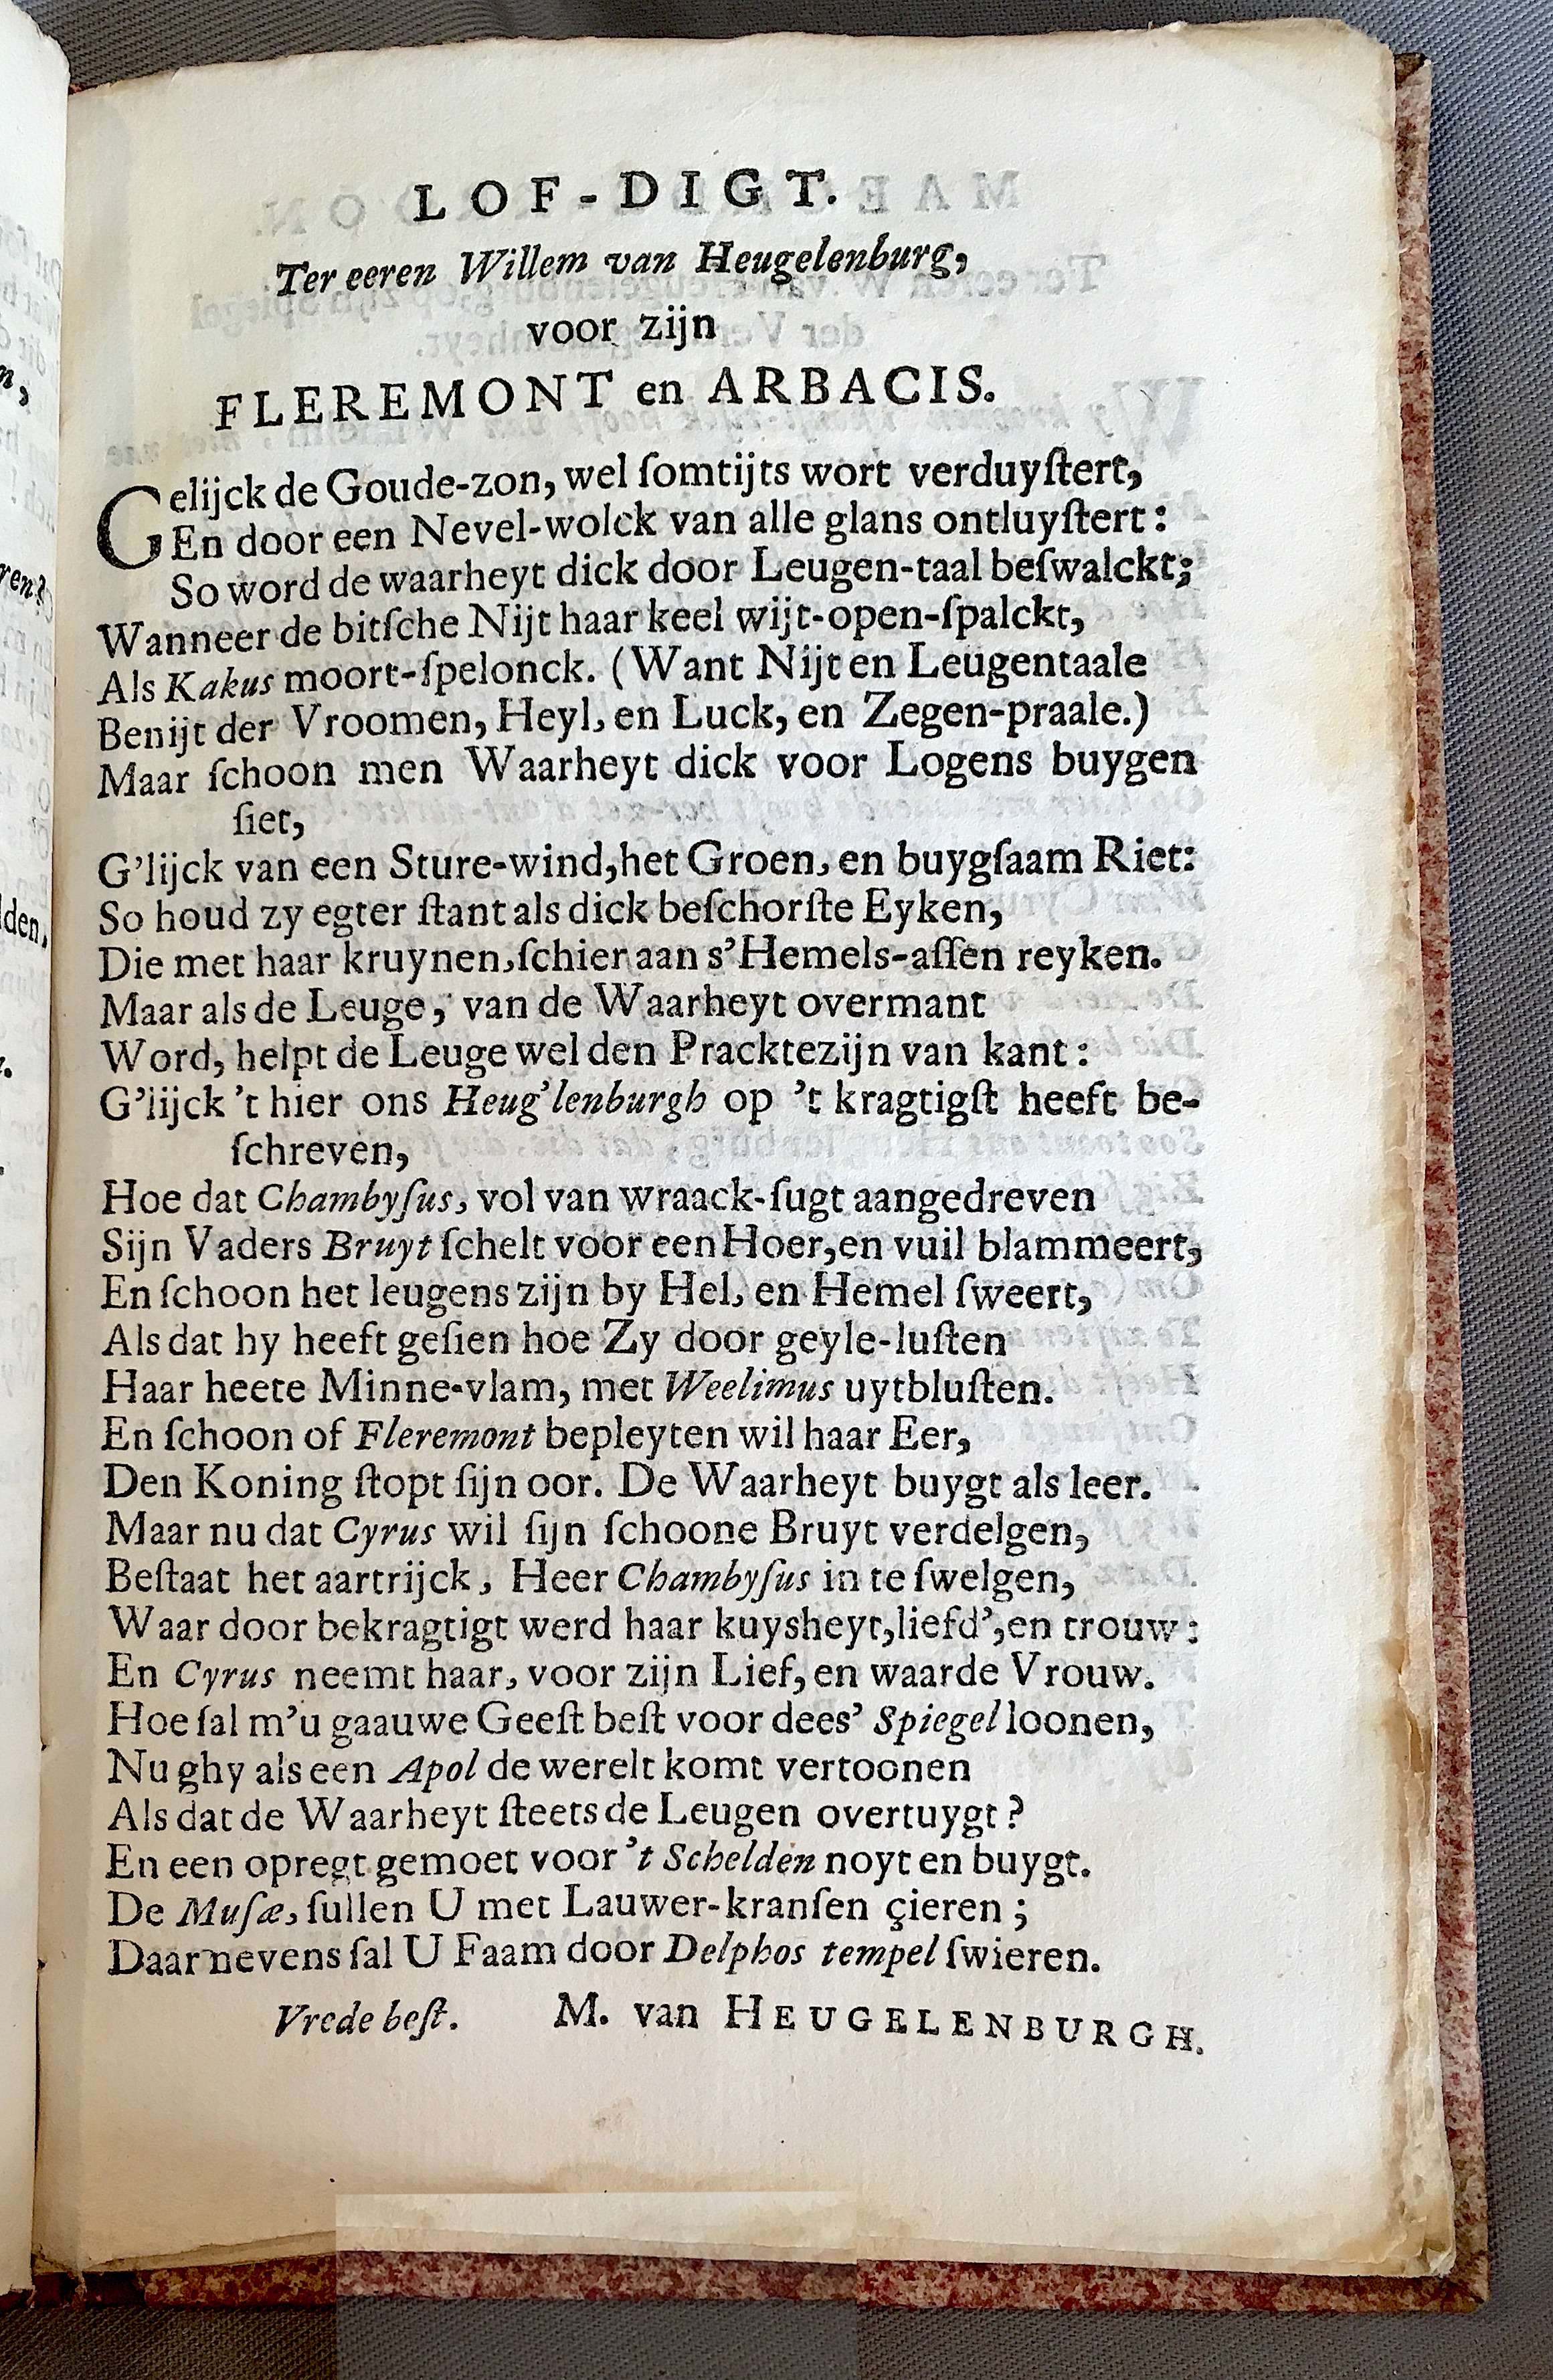 LOF-DIGT.
Ter eeren Willem van Heugelenburg,
voor zijn
FLEREMONT en ARBACIS.
Gelijck de Goude-zon, wel ſomtijts wort verduyſtert,
En door een Nevel-wolck van alle glans ontluyſtert:
So word de waarheyt dick door Leugen-taal beſwalckt;
Wanneer de bitſche Nijt haar keel wijt-open-ſpalckt,
Als Kakus moort-ſpelonck. (Want Nijt en Leugentaale
Benijt der Vroomen, Heyl, en Luck, en Zegen-praale.)
Maar ſchoon men Waarheyt dick voor Logens buygen
ſiet,
G'lijck van een Sture-wind, het Groen, en buygſaam Riet:
So houd zy egter ſtant als dick beſchorſte Eyken,
Die met haar kruynen, ſchier aan s'Hemels-aſſen reyken.
Maar als de Leuge, van de Waarheyt overmant
Word, helpt de Leuge wel den Pracktezijn van kant:
G'lijck 't hier ons Heug'lenburgh op 't kragtigſt heeft be-
ſchreven,
Hoe dat Chambyſus, vol van wraack-ſugt aangedreven
Sijn Vaders Bruyt ſchelt voor een Hoer, en vuil blammeert,
En ſchoon het leugens zijn by Hel, en Hemel ſweert,
Als dat hy heeft geſien hoe Zy door geyle-luſten
Haar heete Minne-vlam, met Weelimus uytbluſten.
En ſchoon of Fleremont bepleyten wil haar Eer,
Den Koning ſtopt ſijn oor. De Waarheyt buygt als leer.
Maar nu dat Cyrus wil ſijn ſchoone Bruyt verdelgen,
Beſtaat het aartrijck, Heer Chambyſus in te ſwelgen,
Waar door bekragtigt werd haar kuysheyt, liefd', en trouw:
En Cyrus neemt haar, voor zijn Lief, en waarde Vrouw.
Hoe ſal m'u gaauwe Geeſt beſt voor dees' Spiegel loonen,
Nu ghy als een Apol de werelt komt vertoonen
Als dat de Waarheyt ſteets de Leugen overtuygt?
En een opregt gemoet voor 't Schelden noyt en buygt.
De Muſæ, ſullen U met Lauwer-kranſen çieren;
Daar nevens ſal U Faam door Delphos tempel ſwieren.
Vrede beſt. M. van HEUGELENBURGH.